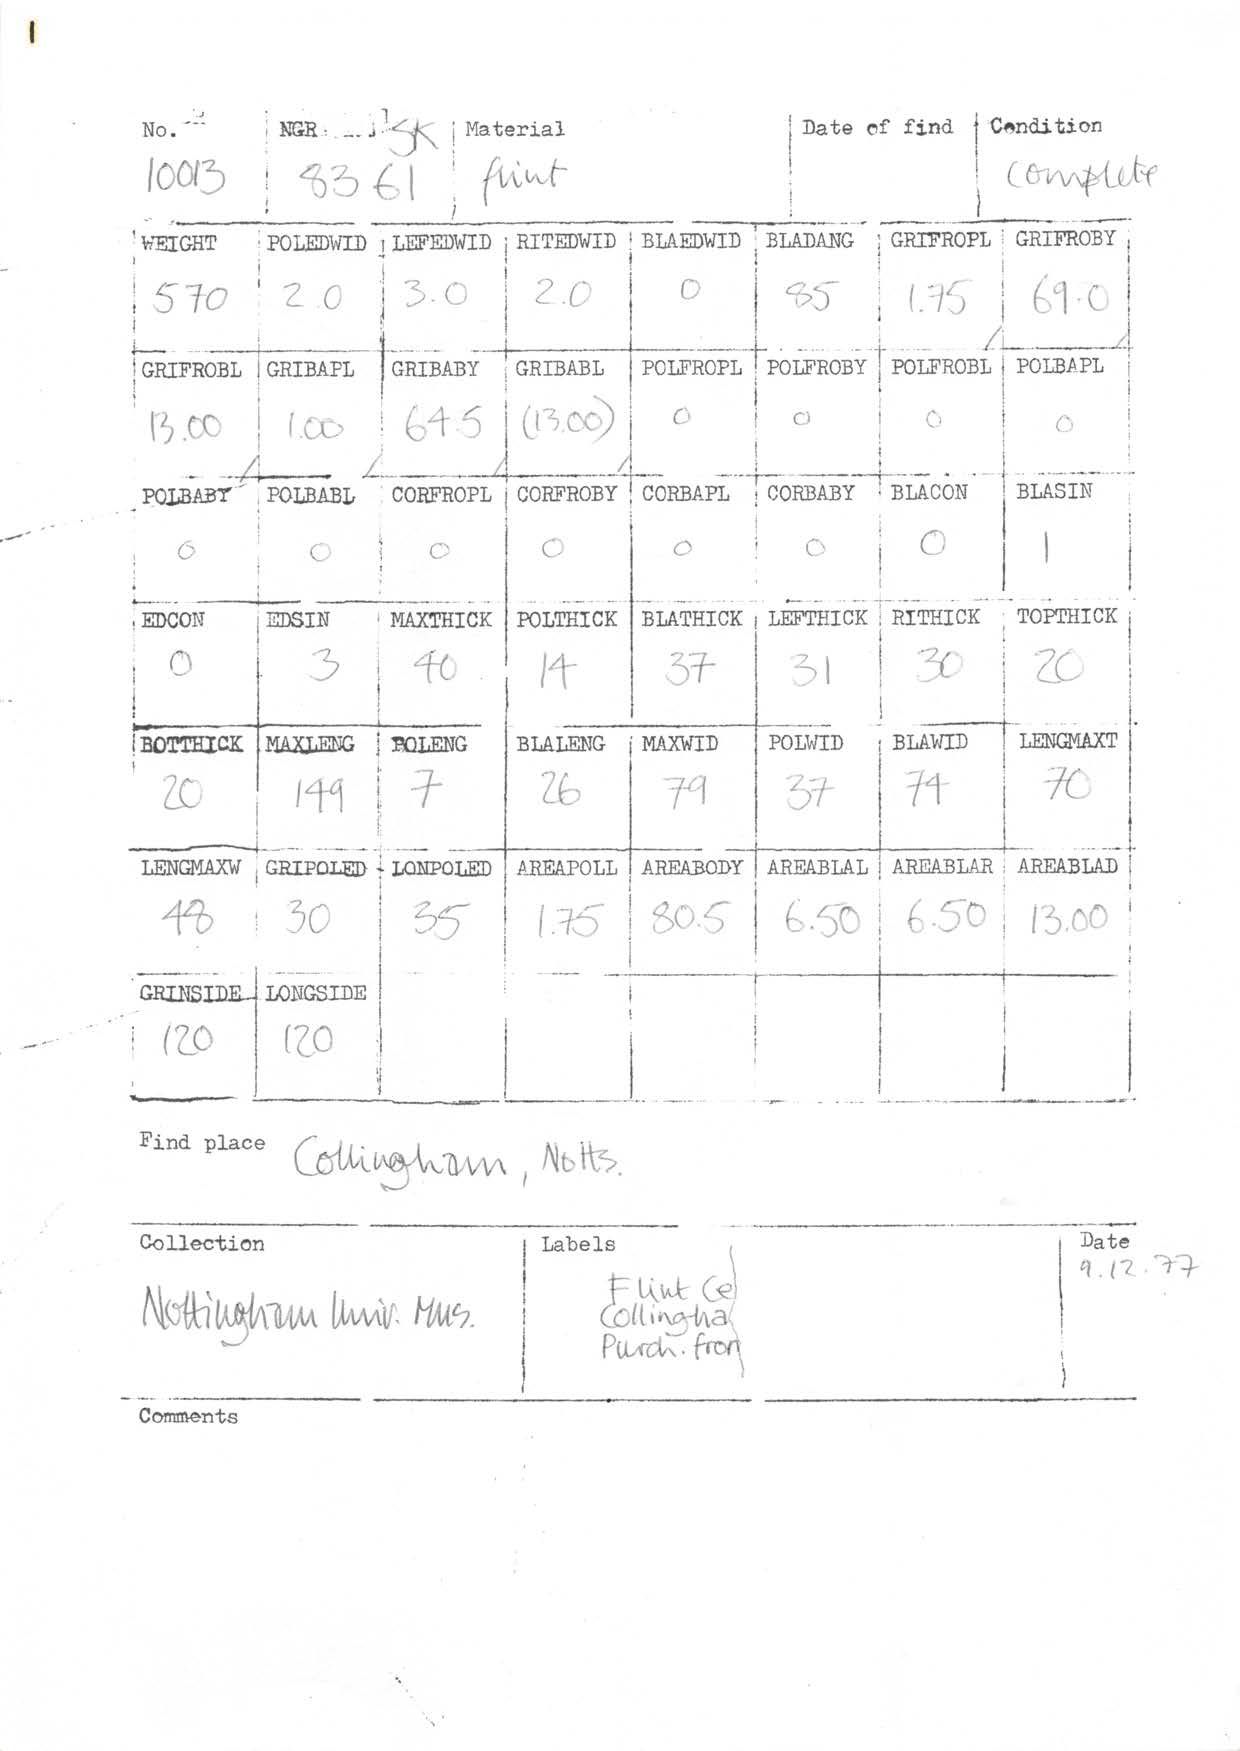 1
No. NGR SK Material Date of find Condition
10013 83 61 flint complete
WEIGHT POLEDWID LEFEDWID RITEDWID BLAEDWID BLADANG GRIFROPL GRIFROBY
570 2.0 3.0 2.0 0 85 1.75 69.0
GRIFROBL GRIBAPL GRIBABY GRIBABL POLFROPL POLFROBY POLFROBL POLBAPL
13.00 1.00 64.5 (13.00) 0 0 0 0
POLBABY POLBABL CORFROPL CORFROBY CORBAPL CORBABY BLACON BLASIN
0 0 0 0 0 0 0 1
EDCON EDSIN MAXTHICK POLTHICK BLATHICK LEFTHICK RITHICK TOPTHICK
0 3 40 14 37 31 30 20
BOTTHICK MAXLENG POLENG BLALENG MAXWID POLWID BLAWID LENGMAXT
20 149 7 26 79 37 74 70
LENGMAXW GRIPOLED LONPOLED AREAPOLL AREABODY AREABLAL AREABLAR AREABLAD
48 30 35 1.75 80.5 6.50 6.50 13.00
GRINSIDE LONGSIDE
120 120
Find place Collingham, Notts.
Collection Labels Date
9.12.77
Nottingham Univ. Mus.
Flint Ce
Collingha
Purch. from
Comments